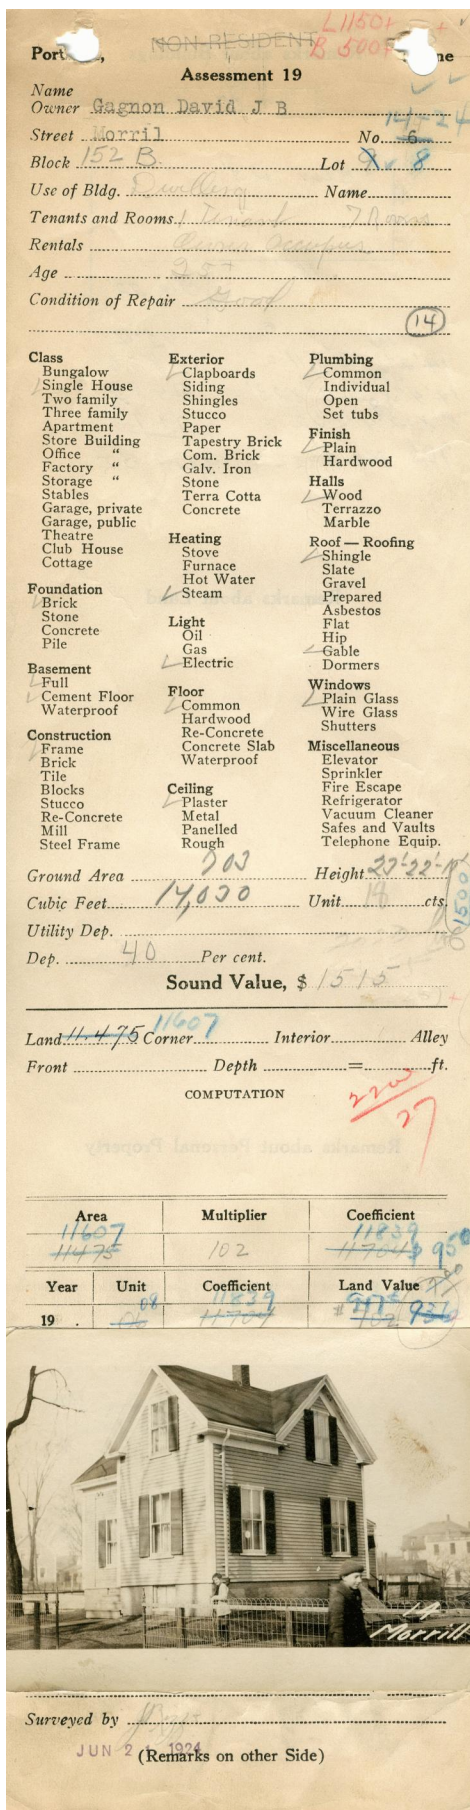 L1150+
NON-RESIDENT B 500+
Assessment 19
Name
Owner Gagnon David J B
14-24
Street Morril No. 6
Block 152 B. Lot 8
Use of Bldg. Dwelling Name
Tenants and Rooms 1 Tenant 7 Rooms
Rentals Owner Occupies
Age
Condition of Repair Good
14
Class
Bungalow
Single House
Two family
Three family
Apartment
Store Building
Office "
Factory "
Storage "
Stables
Garage, private
Garage, public
Theatre
Club House
Cottage
Foundation
Brick
Stone
Concrete
Pile
Basement
Full
Cement Floor
Waterproof
Construction
Frame
Brick
Tile
Blocks
Stucco
Re-Concrete
Mill
Steel Frame
Exterior
Clapboards
Siding
Shingles
Stucco
Paper
Tapestry Brick
Com. Brick
Galv. Iron
Stone
Terra Cotta
Concrete
Heating
Stove
Furnace
Hot Water
Steam
Light
Oil
Gas
Electric
Floor
Common
Hardwood
Re-Concrete
Concrete Slab
Waterproof
Ceiling
Plaster
Metal
Panelled
Rough
Plumbing
Common
Individual
Open
Set tubs
Finish
Plain
Hardwood
Halls
Wood
Terrazzo
Marble
Roof — Roofing
Shingle
Slate
Gravel
Prepared
Asbestos
Flat
Hip
Gable
Dormers
Windows
Plain Glass
Wire Glass
Shutters
Miscellaneous
Elevator
Sprinkler
Fire Escape
Refrigerator
Vacuum Cleaner
Safes and Vaults
Telephone Equip.
Ground Area 703 Height
Cubic Feet 14,030 Unit 18 cts.
1500
Utility Dep.
Dep. 40 Per cent.
Sound Value, $ 1515
11607
Land 11.475 Corner Interior Alley
Front Depth = ft.
COMPUTATION
2200
27
Area Multiplier Coefficient
11607 11839
11475 102 11704 $ 950
Year Unit Coefficient Land Value
08 11839 947
19 . 06 11704 $ 702 936
14
Morrill
Surveyed by
JUN 2 1924
(Remarks on other Side)